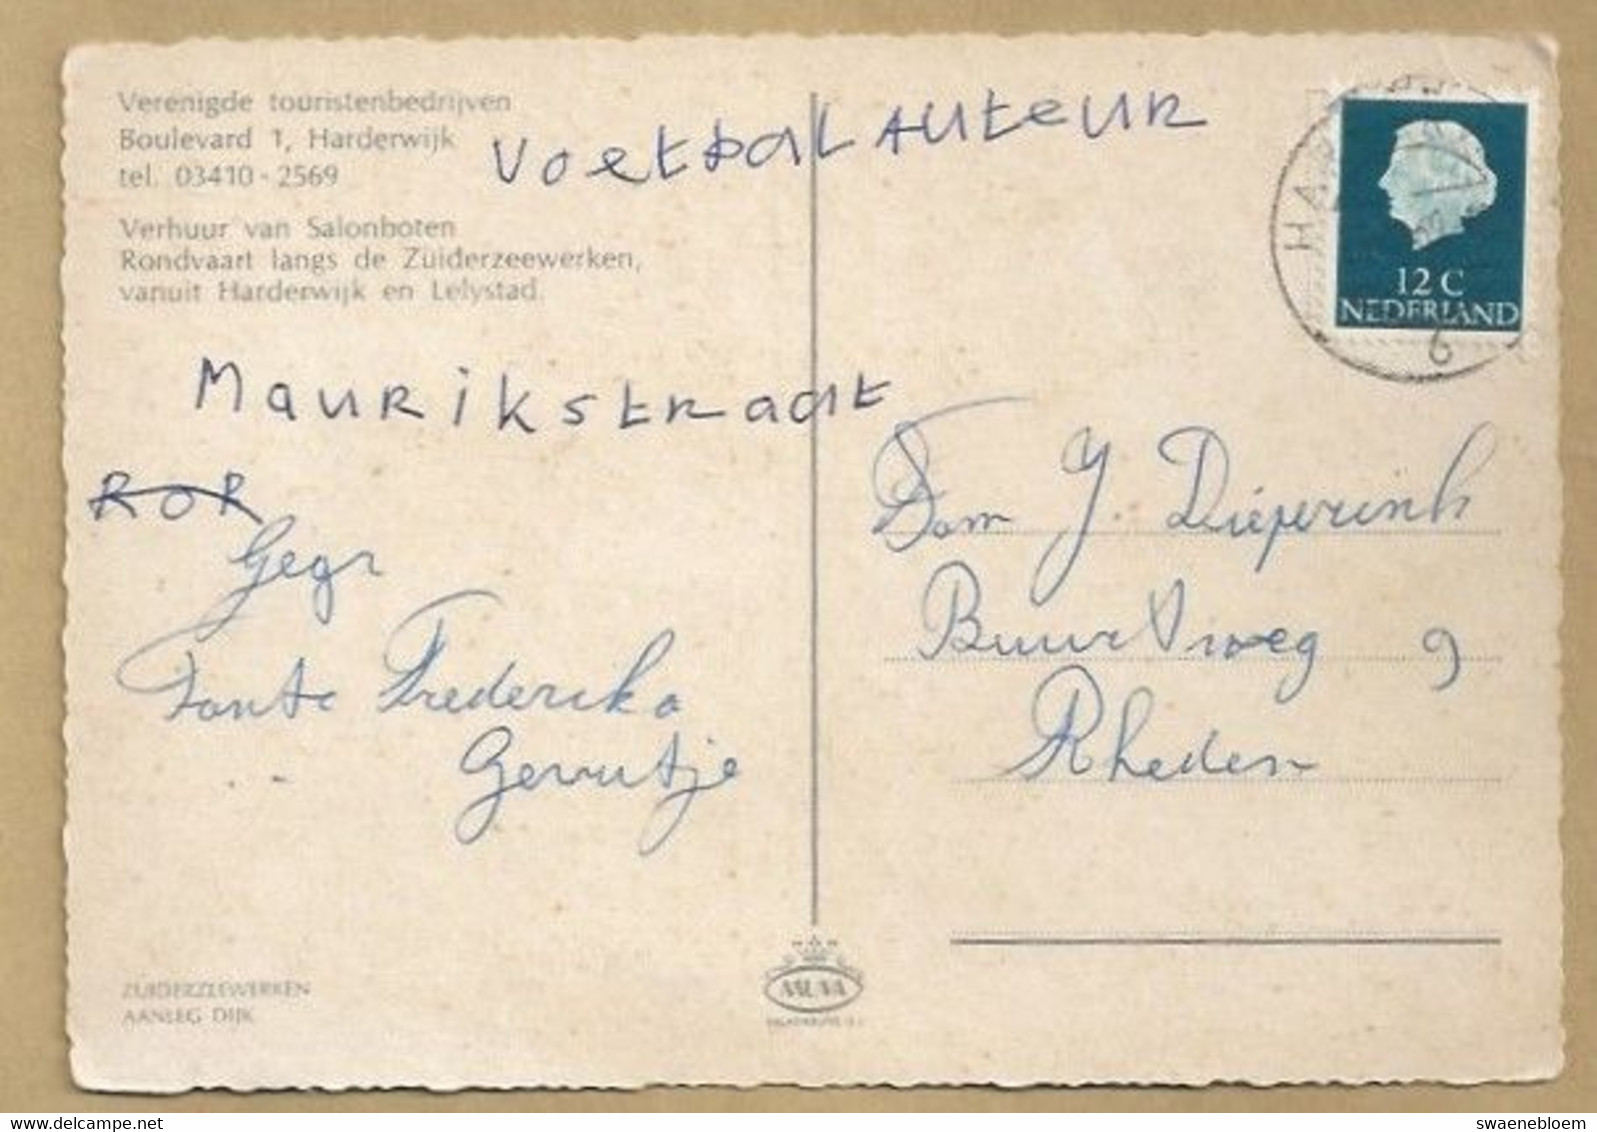 Verenigde touristenbedrijven
Boulevard 1, Harderwijk
tel. 03410-2569
Verhuur van Salonboten
Rondvaart langs de Zuiderzeewerken,
vanuit Harderwijk en Lelystad.
Voetbalauteur
Maurikstraat
ROR
Gegr
Tante Frederika
Gerritje
ZUIDERZEEWERKEN
AANLEG DIJK
12 C
NEDERLAND
6
Fam J. Dieperink
Buurtweg 9
Rheden
www.delcampe.net
swaenebloem